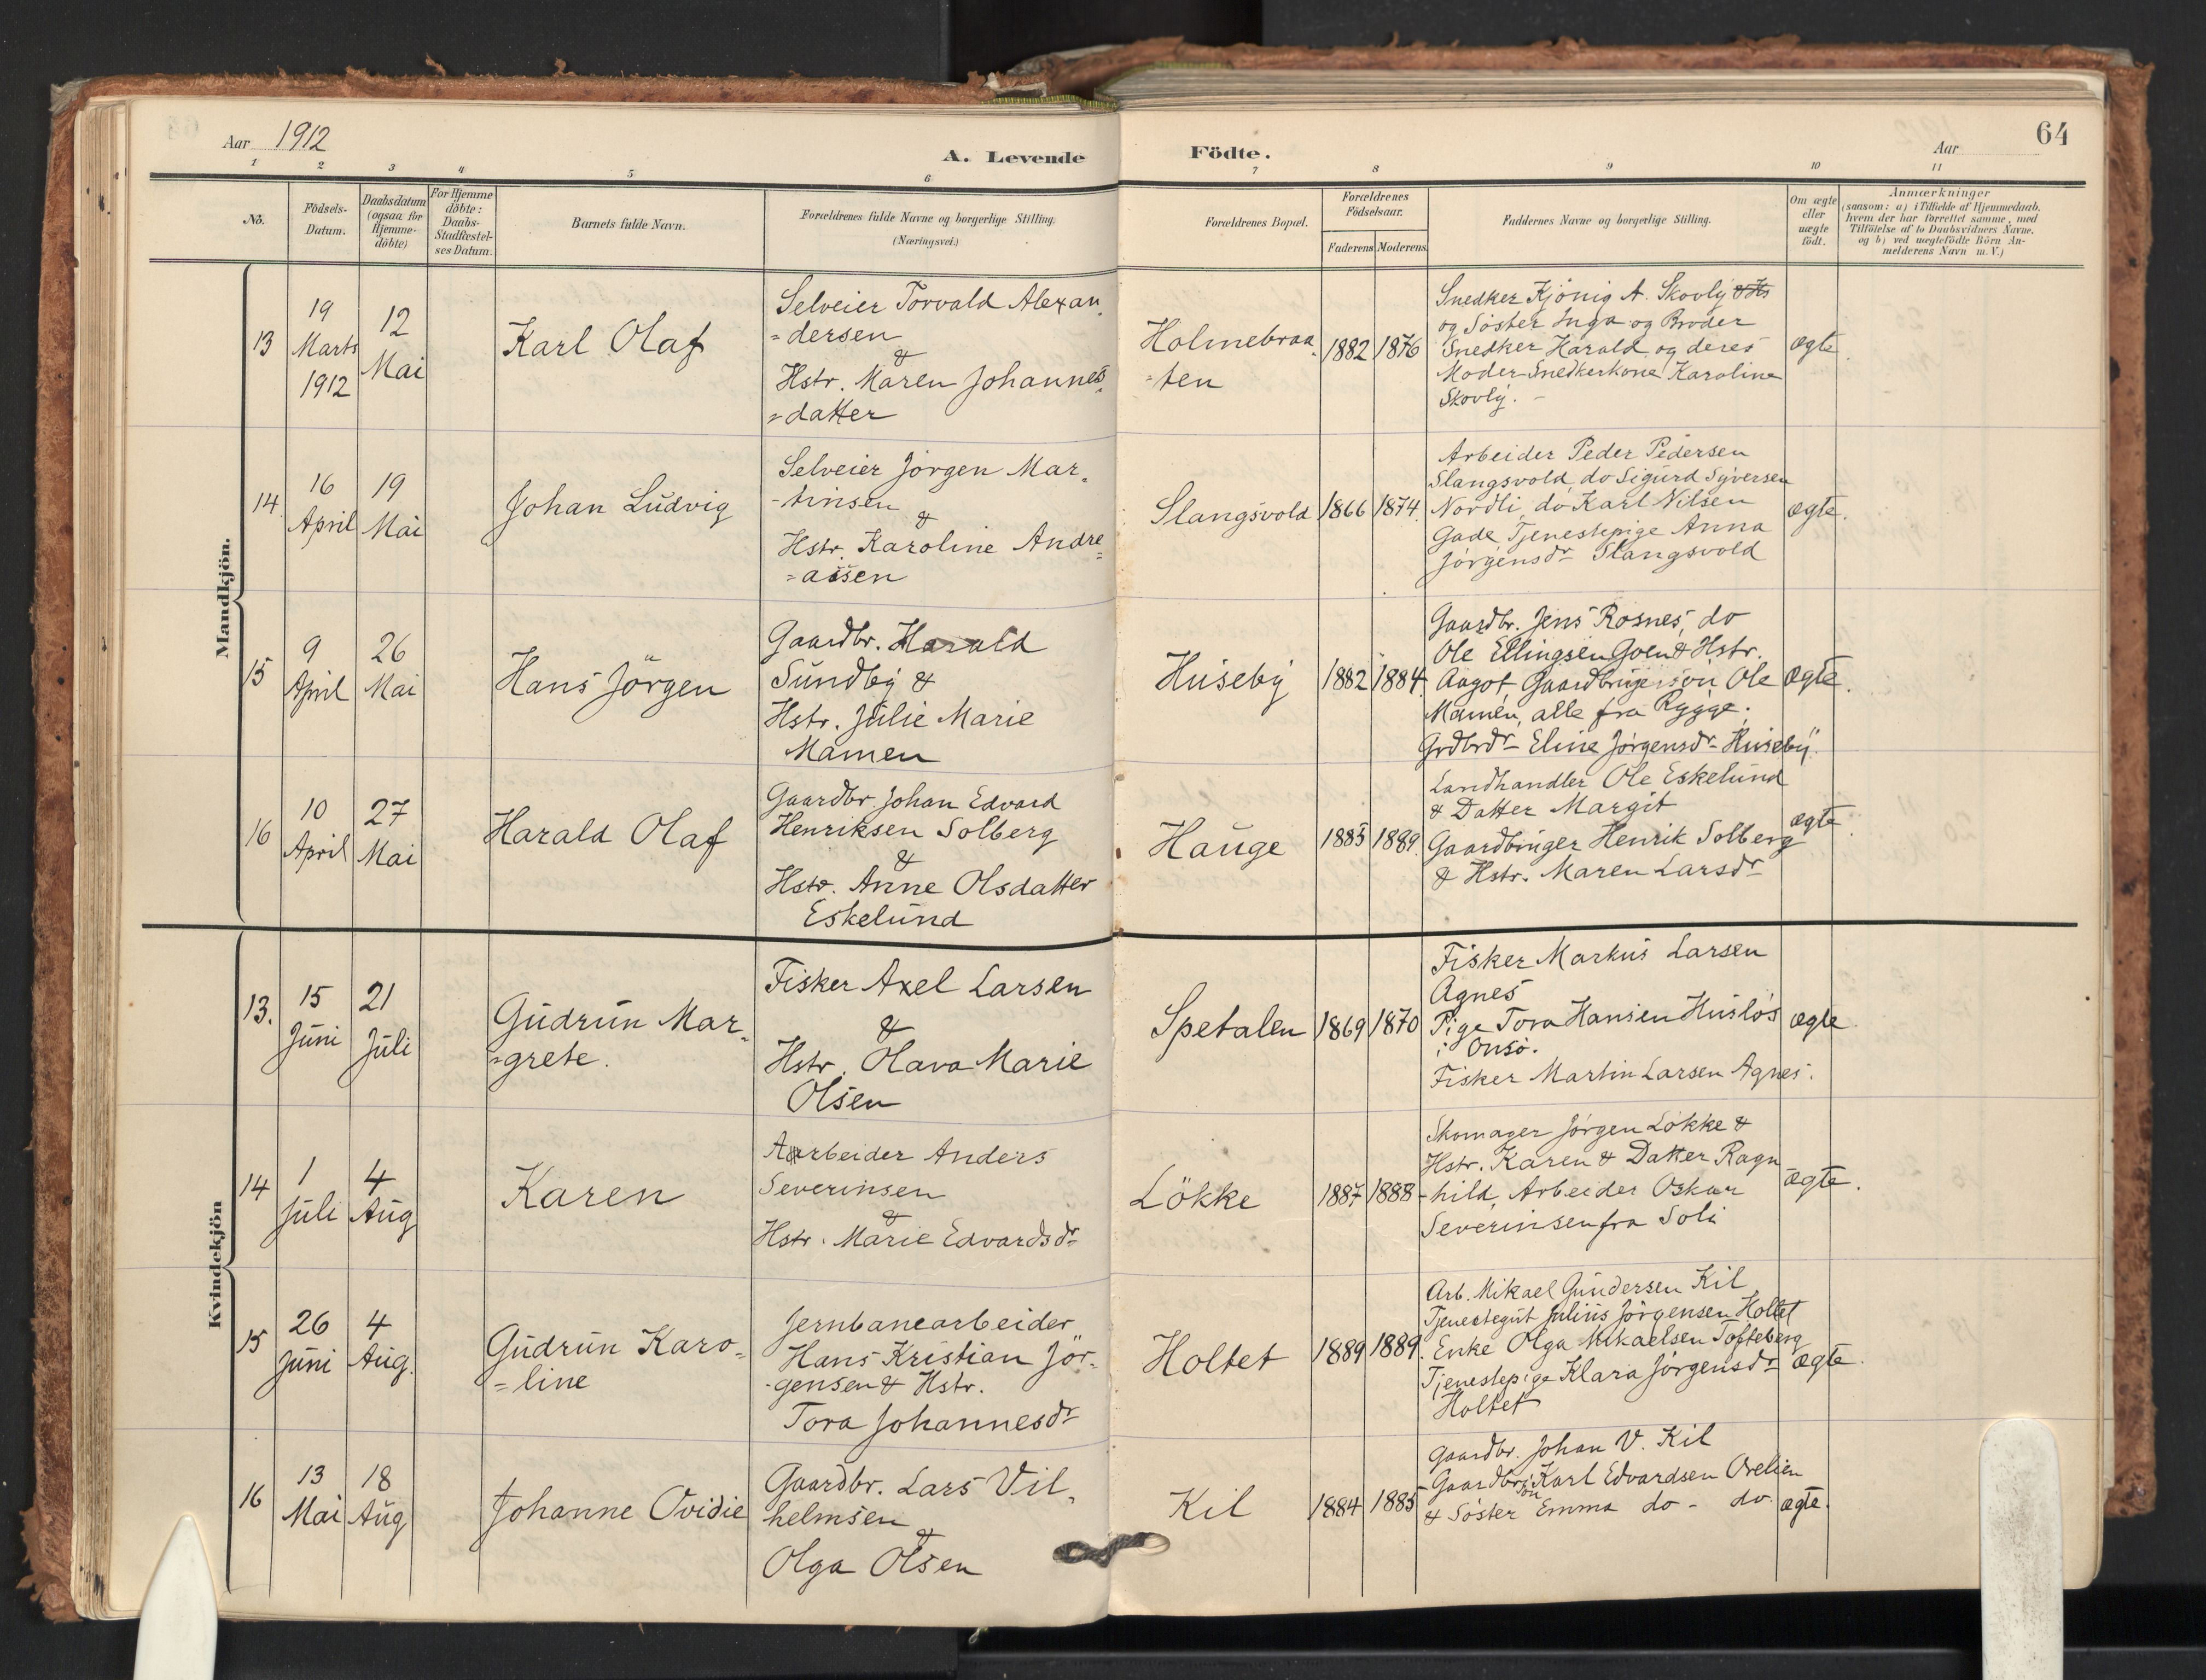 Aar 1912
A. Levende Födte.
Aar
64
1 2 3 4 5 6 7 8 9 10 11
Nö.
Födsels-
Datum.
Daabsdatum
(ogsaa for
Hjemme-
döbte)
For Hjemme
döbte:
Daabs-
Stadfæstel-
ses Datum.
Barnets fulde Navn.
Forældrenes fulde Navne og borgerlige Stilling.
(Næringsvei.)
Forældrenes Bopæl.
Forældrenes
Födselsaar.
Faderens Moderens
Faddernes Navne og borgerlige Stilling.
Om ægte
eller
uægte
födt.
Anmærkninger
(saasom: a) i Tilfælde af Hjemmedaab,
hvem der har forrettet samme, med
Tilföielse af to Daabsvidners Navne,
og b) ved uægtefödte Börn An-
melderens Navn m. V.)
Mandkjön.
13
19
Marts
1912
12
Mai
Karl Olaf
Selveier Torvald Alexan-
=dersen
&
Hstr. Maren Johannes=
=datter
Holmebraa-
=ten
1882 1876
Snedker Kjönig A. Skovly & Hs
og Söster Inga og Broder
Snedker Harald og deres
Moder Snedkerkone Karoline
Skovly. -
ægte.
14
16
April
19
Mai
Johan Ludvig
Selveier Jörgen Mar-
-tinsen
&
Hstr. Karoline Andre=
=assen
Slangsvold
1866 1874
Arbeider Peder Pedersen
Slangsvold, do Sigurd Syversen
Nordli, do Karl Nilsen
Gade, Tjenestepige Anna
Jörgensdr Slangsvold
ægte.
15
9
April
26
Mai
Hans Jörgen
Gaardbr. Harald
Sundby &
Hstr. Julie Marie
Mamen
Huseby
1882 1884
Gaardbr. Jens Rosnes, do
Ole Ellingsen Goen & Hstr.
Aagot, Gaardbrugersön Ole
Mamen, alle fra Rygge.
Grdbrdr Eline Jörgensdr Huseby.
ægte.
16
10
April
27
Mai
Harald Olaf
Gaardbr. Johan Edvard
Henriksen Solberg
&
Hstr. Anne Olsdatter
Eskelund
Hauge
1885 1889.
Landhandler Ole Eskelund
& Datter Margit
Gaardbruger Henrik Solberg
& Hstr. Maren Larsdr
ægte.
Kvindekjön
13.
15
Juni
21
Juli
Gudrun Mar-
=grete.
Fisker Axel Larsen
&
Hstr. Olava Marie
Olsen
Spetalen
1869 1870
Fisker Markus Larsen
Agnes
Pige Tora Hansen Huslös
i Onsö.
Fisker Martin Larsen Agnes.
ægte.
14
1
Juli
4
Aug
Karen
Arbeider Anders
Severinsen
&
Hstr. Marie Edvardsdr
Lökke
1887 1888
Skomager Jörgen Lökke &
Hstr. Karen & Datter Ragn
-hild, Arbeider Oskar
Severinsen fra Soli
ægte.
15
26
Juni
4
Aug.
Gudrun Karo-
=line
Jernbanearbeider
Hans Kristian Jör-
-gensen & Hstr.
Tora Johannesdr
Holtet
1889 1889.
Arb. Mikael Gundersen Kil
Tjenestegut Julius Jörgensen Holtet
Enke Olga Mikaelsen Tofteberg
Tjenestepige Klara Jörgensdr
Holtet
ægte.
16
13
Mai
18
Aug
Johanne Ovidie
Gaardbr. Lars Vil-
helmsen
&
Olga Olsen
Kil
1884 1885
Gaardbr. Johan V. Kil
Gaardbrsön Karl Edvardsen Orelien
& Söster Emma do - do.
ægte.